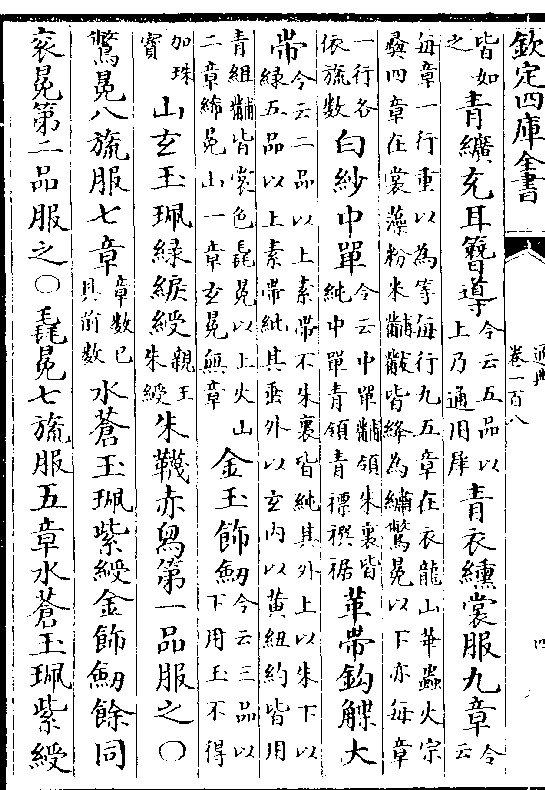 欽定四庫全書 通典 卷一百八 四
皆如之青纊充耳簪導今云五品以上乃通用犀青衣纁裳服九章今云
每章一行重以為等每行九五章在衣龍山華蟲火宗彝四章在裳藻粉米黼黻皆絳為繡鷩冕以下亦每章
一行各依旒數白紗中單今云中單黼領朱裏皆純中單青領青褾襈裾革帶鈎䚢大
帶今云二品以上素帶不朱裏皆紕其外上以朱下以緑五品以上素帶紕其垂外以玄内以黄紐約皆用
青組黼皆裳色毳冕以上火山二章絺冕山一章玄冕無章金玉飾劒今云三品以下用玉不得
加珠寳山玄玉珮緑綟綬親王朱綬朱韈赤舄第一品服之〇
鷩冕八旒服七章章數已具前數水蒼玉珮紫綬金飾劒餘同
衮冕第二品服之〇毳冕七旒服五章水蒼玉珮紫綬